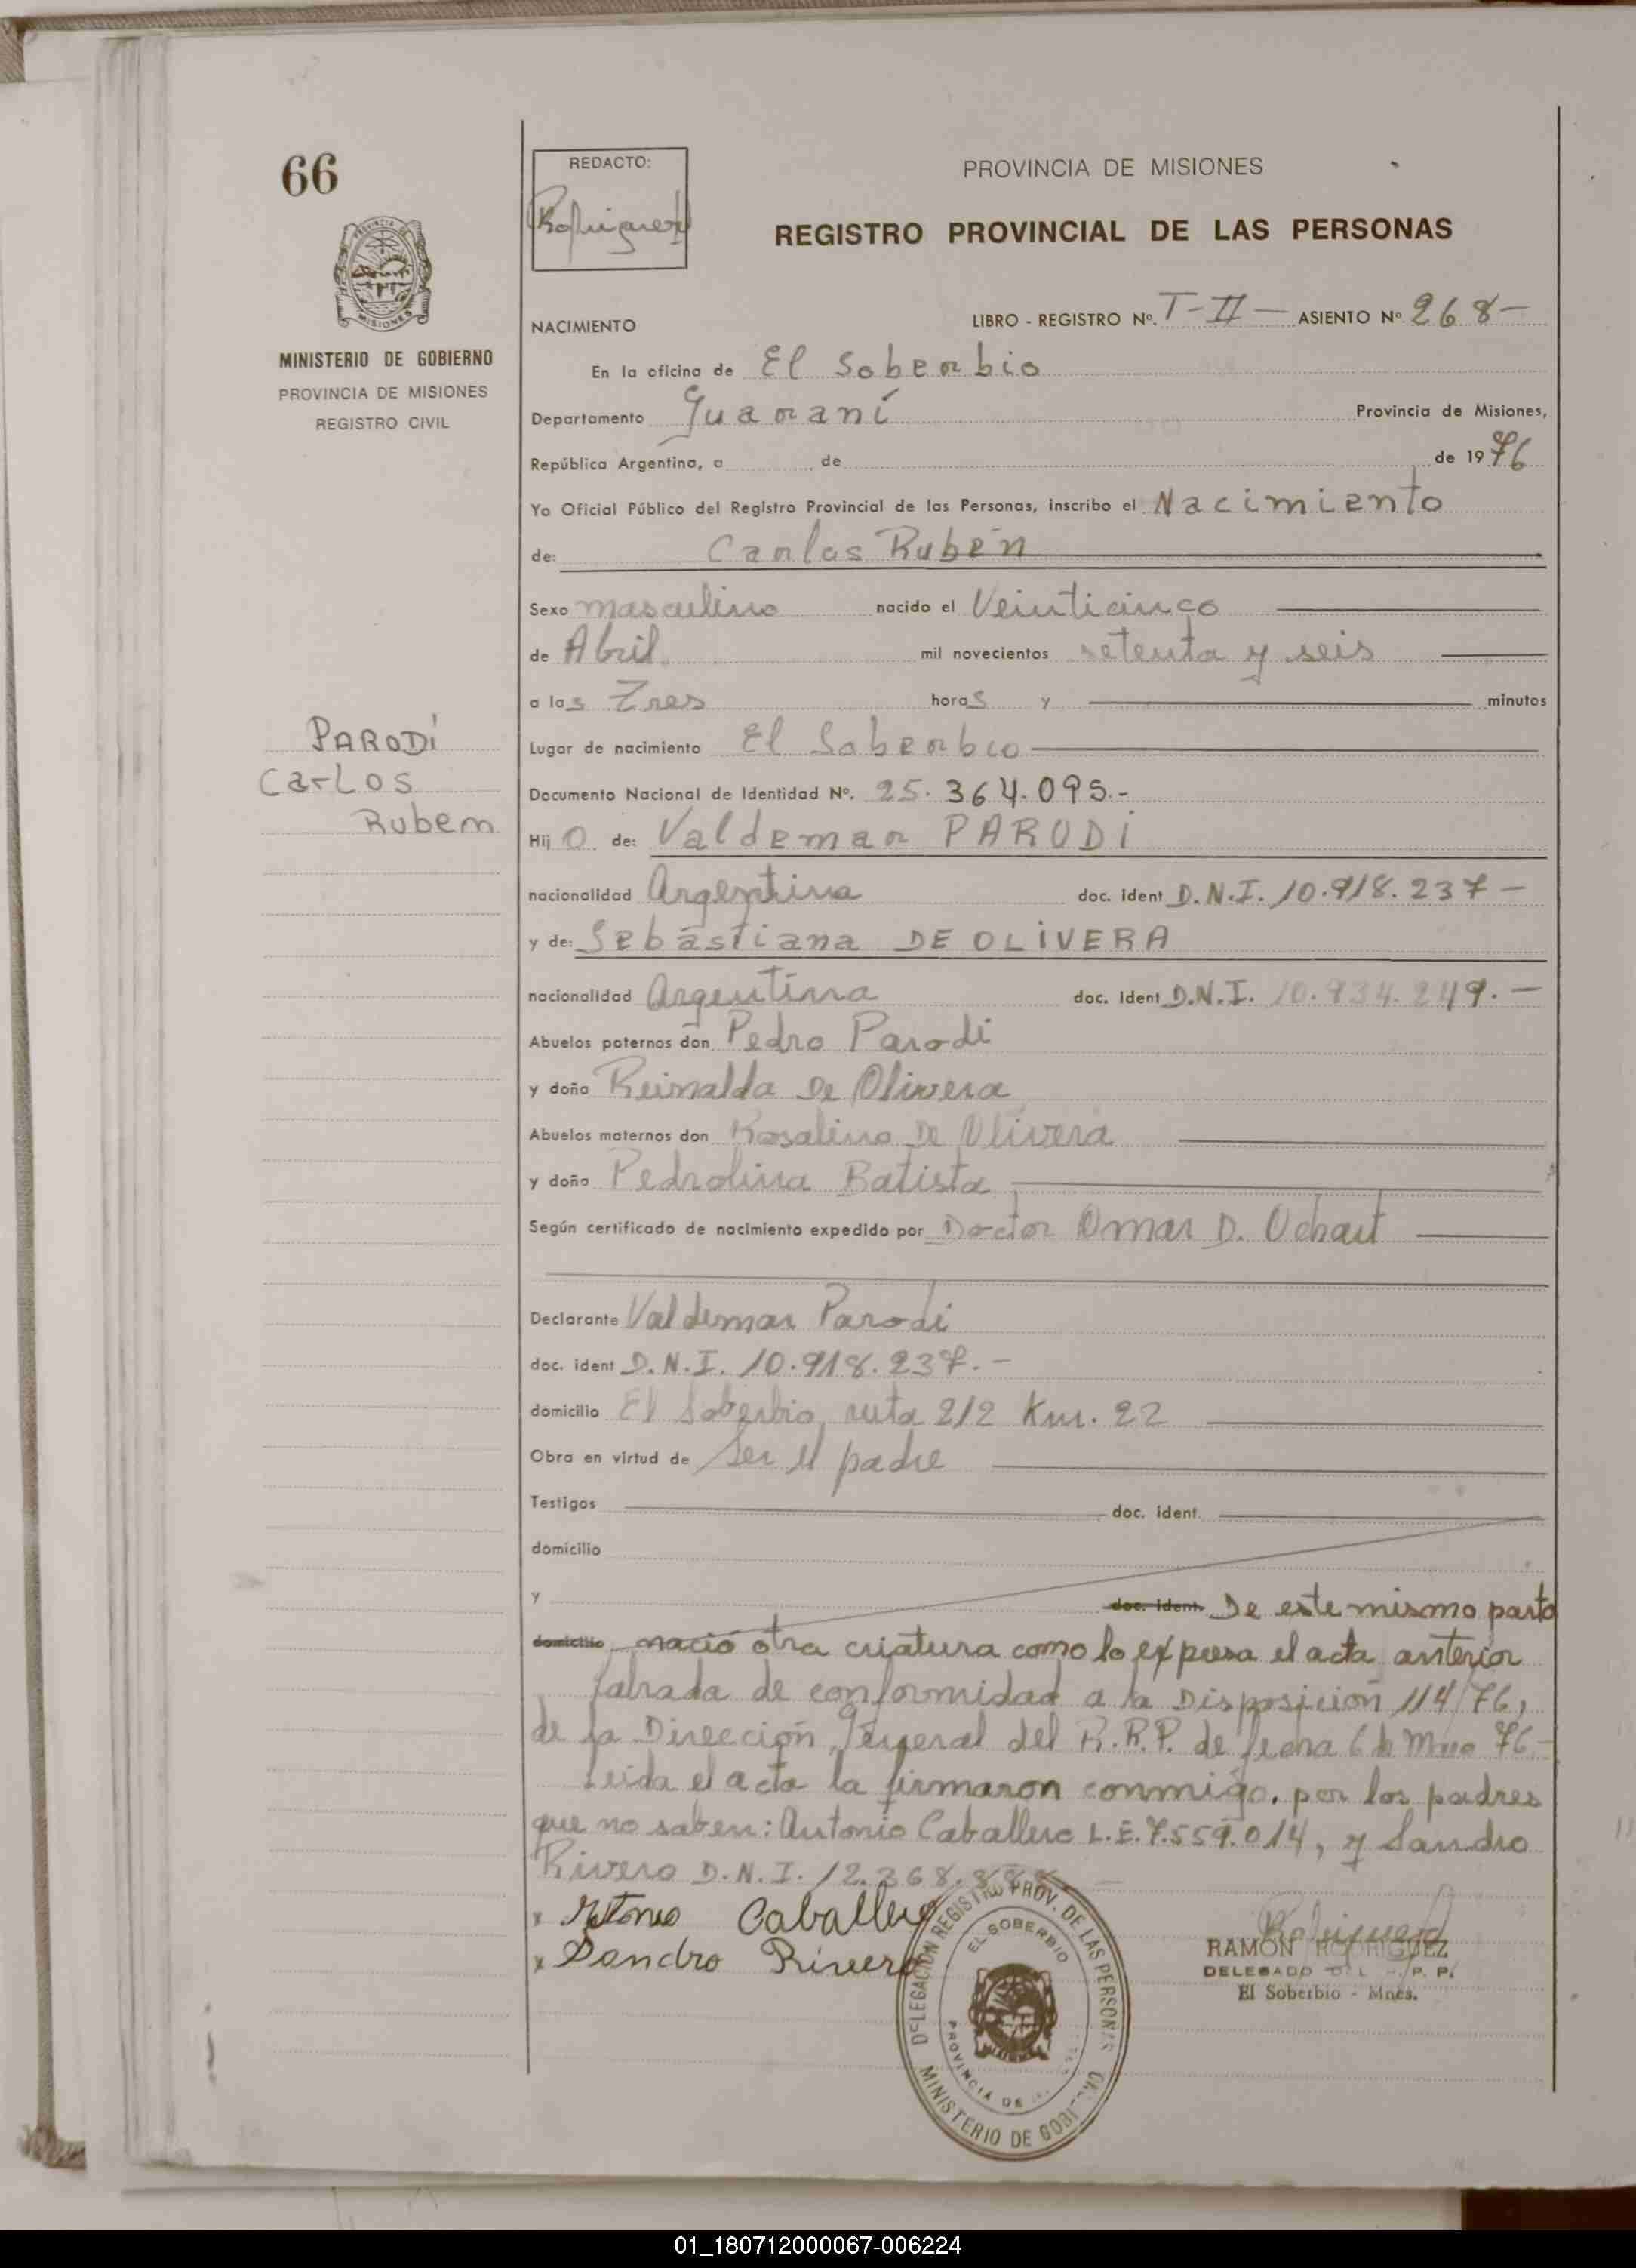 66
REDACTO:
Rodriguez
PROVINCIA DE MISIONES
REGISTRO PROVINCIAL DE LAS PERSONAS
MISIONES
MINISTERIO DE GOBIERNO
PROVINCIA DE MISIONES
REGISTRO CIVIL
NACIMIENTO
LIBRO - REGISTRO Nº. T-II- ASIENTO Nº 268-
En la oficina de El Soberbio
Departamento Guaraní Provincia de Misiones,
República Argentina, a de de 1976
Yo Oficial Público del Registro Provincial de las Personas, inscribo el Nacimiento
de: Carlos Rubén
Sexo masculino nacido el Veinticinco
de Abril mil novecientos setenta y seis
a las Tres horas y minutos
Lugar de nacimiento El Soberbio
PARODI
Carlos
Rubem
Documento Nacional de Identidad Nº. 25.364.095.-
Hijo de: Valdemar PARODI
nacionalidad Argentina doc. ident D.N.I. 10.918.237-
y de: Sebastiana DE OLIVERA
nacionalidad Argentina doc. ident D.N.I. 10.934.249.-
Abuelos paternos don Pedro Parodi
y doña Reinalda De Olivera
Abuelos maternos don Rosalino De Olivera
y doña Pedrolina Batista
Según certificado de nacimiento expedido por Doctor Omar D.
Declarante Valdemar Parodi
doc. ident D.N.I. 10.918.237.-
domicilio El Soberbio, ruta 212 Km. 22
Obra en virtud de Ser el padre
Testigos doc. ident.
domicilio
y doc. ident. De este mismo parto
domicilio nació otra criatura como lo expresa el acta anterior
labrada de conformidad a la Disposición 114/76,
de la Dirección General del R.R.P. de fecha 6 de Mayo 76-
Leida el acta la firmaron conmigo, por los padres
que no saben: Antonio Caballero L.E. 7.559.014, y Sandro
Rivero D.N.I. 12.368.
x Antonio Caballero
x Sandro Rivero
DELEGACION REGISTRO PROV. DE LAS PERSONAS
EL SOBERBIO
PROVINCIA DE
MINISTERIO DE GOBI
Rodriguez
RAMON RODRIGUEZ
DELEGADO DEL R. P. P.
El Soberbio - Mnes.
01_180712000067-006224